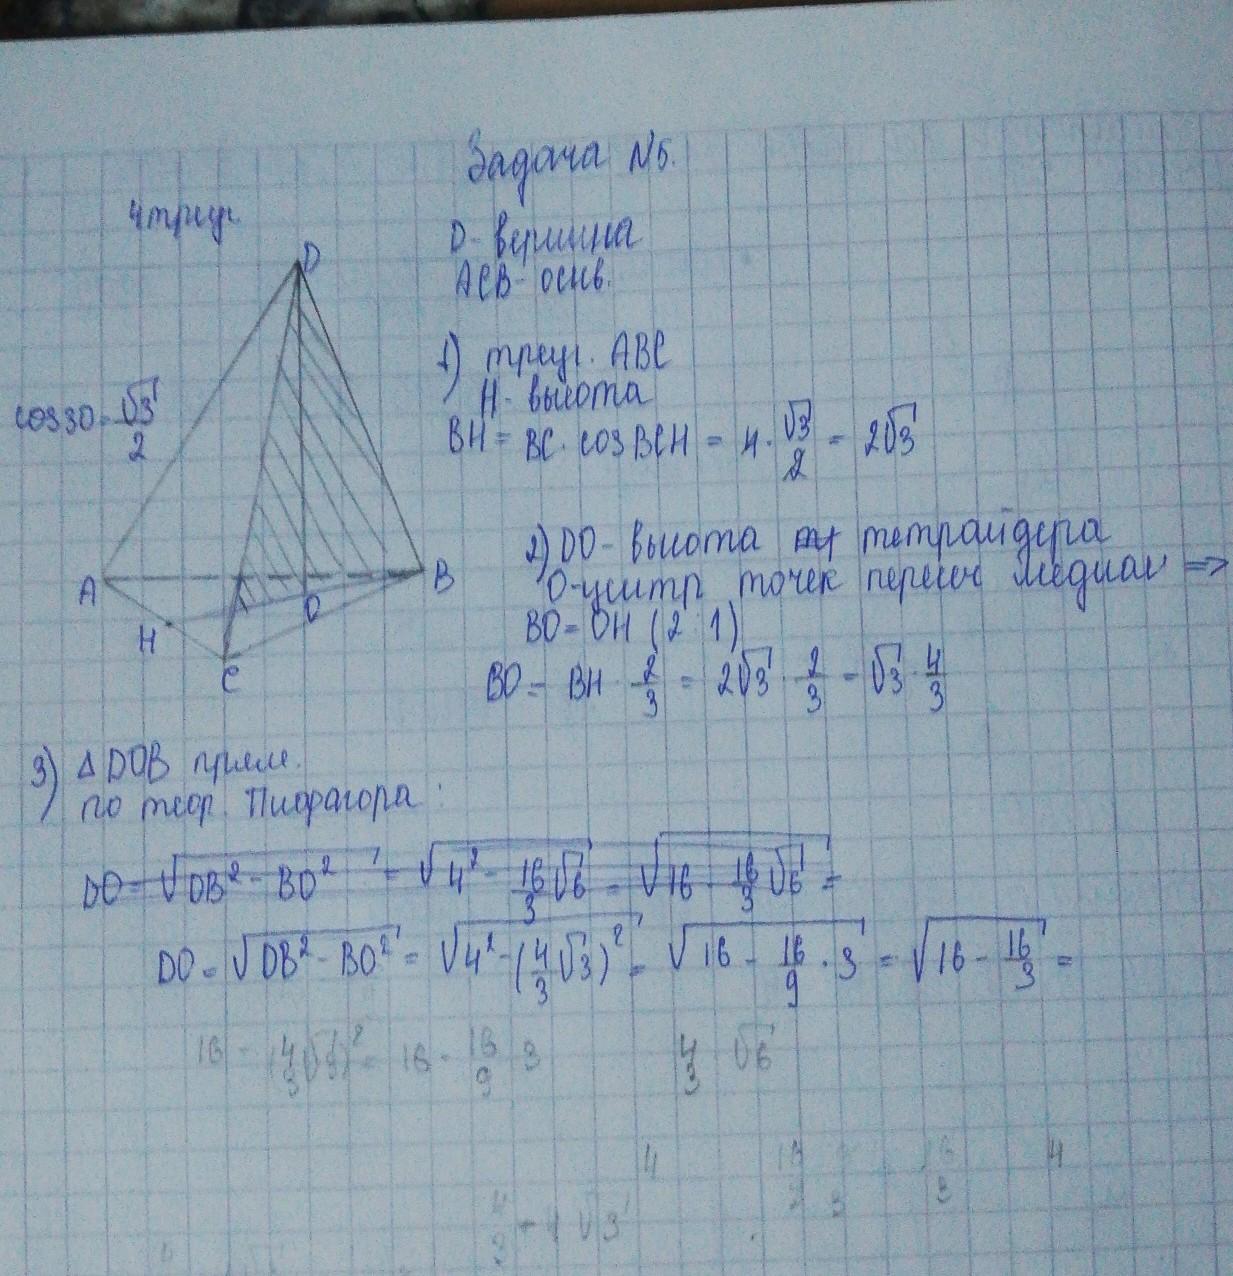 Задача №5.
4 треуг.
D - вершина
ACB - оснв.
D
1) треуг. ABC
H - высота
cos30 = √3/2
BH = BC · cos BCH = 4 · √3/2 = 2√3
2) DO - высота тетрайдера
A
B
O - центр точек пересеч медиан ⇒
H
O
BO = OH (2 : 1)
C
BO = BH · 2/3 = 2√3 · 2/3 = √3 · 4/3
3) Δ DOB прям.
по теор. Пифагора :
DO = √(DB² - BO²) = √(4² - 16/3 √6) = √(16 - 16/3 √6) =
DO = √(DB² - BO²) = √(4² - (4/3 √3)²) = √(16 - 16/9 · 3) = √(16 - 16/3) =
16 - (4/3 √3)² = 16 - 16/9 3 4/3 √6
4 4